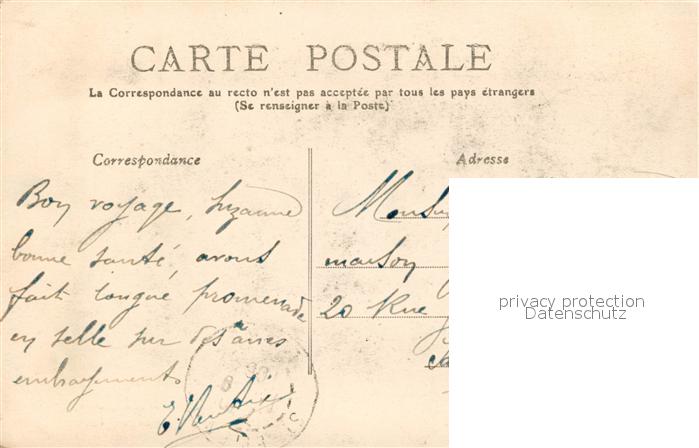 CARTE POSTALE
La Correspondance au recto n'est pas acceptée par tous les pays étrangers
(Se renseigner à la Poste)
Correspondance
Adresse
Bon voyage, Suzanne
bonne santé, avons
fait longue promenade
en selle sur des ânes
maison
20 Rue
privacy protection
Datenschutz